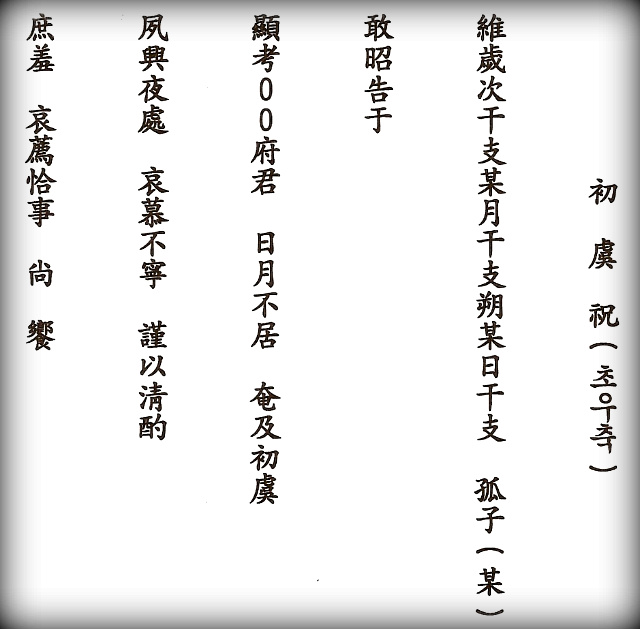 初虞祝(초우축)
維歲次干支某月干支朔某日干支 孤子(某)
敢昭告于
顯考00府君 日月不居 奄及初虞
夙興夜處 哀慕不寧 謹以淸酌
庶羞 哀薦恰事 尙饗